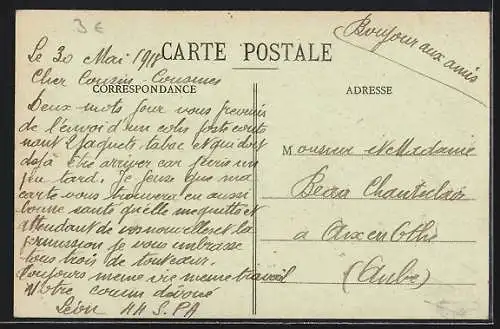 3 €
Le 30 Mai 191
CARTE POSTALE
Bonjour aux amis
Cher Cousin - Cousines
CORRESPONDANCE
ADRESSE
Deux mots pour vous prevenir
de l'envoi d'un colis poste conte
nant 2 paquets tabac et qui doit
deja être arriver car j'écris un
peu tard. Je pense que ma
carte vous trouvera en aussi
bonne santé qu'elle me quitte et
attendant de vos nouvelles et la
permission je vous embrasse
tous trois de tout cœur.
Toujours meme vie meme travail
Votre cousin dévoué
Léon
Monsieur et Madame
Beau Chanteclair
a Aix en Othe
(Aube)